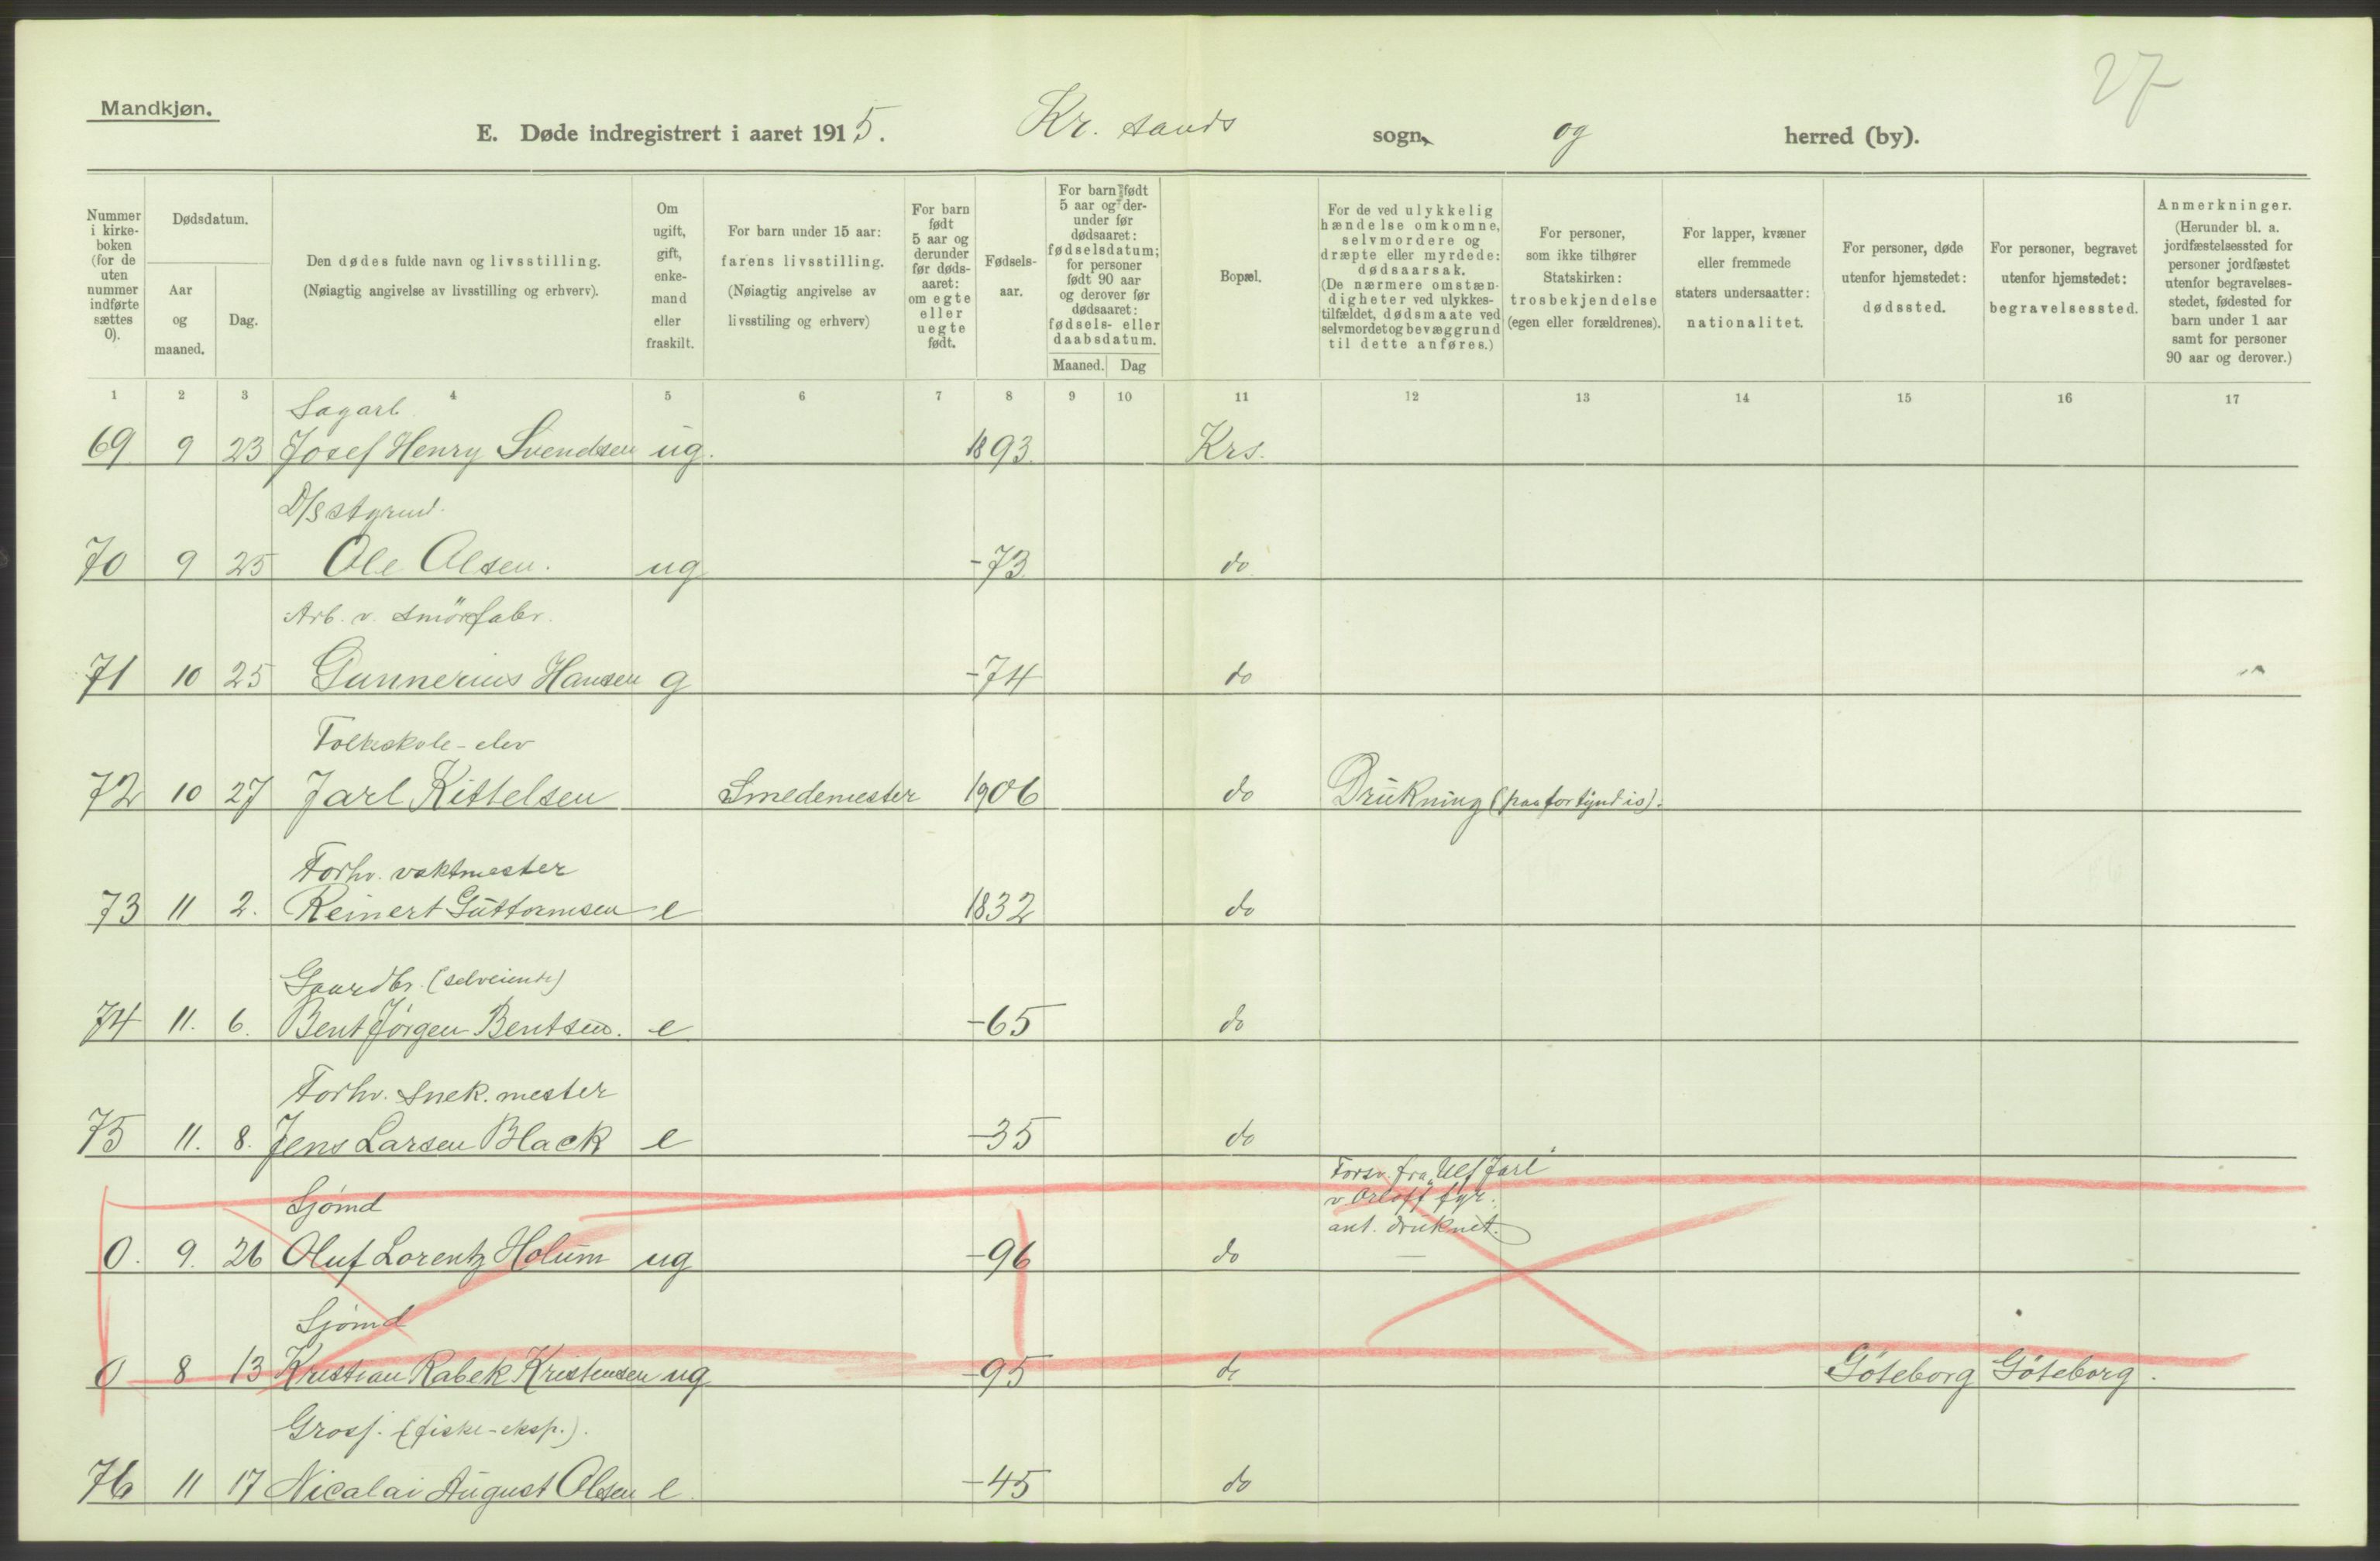 27
Mandkjøn.
E. Døde indregistrert i aaret 1915. Kr. sands sogn, og herred (by).
Nummer i kirke-boken (for de uten nummer indførte sættes 0).
Dødsdatum.
Aar og maaned.
Dag.
Den dødes fulde navn og livsstilling.
(Nøiagtig angivelse av livsstilling og erhverv).
Om ugift, gift, enke-mand eller fraskilt.
For barn under 15 aar: farens livsstilling.
(Nøiagtig angivelse av livsstiling og erhverv)
For barn født 5 aar og derunder før døds-aaret: om egte eller uegte født.
Fødsels-aar.
For barn født 5 aar og der-under før dødsaaret: fødselsdatum; for personer født 90 aar og derover før dødsaaret: fødsels- eller daabsdatum.
Maaned. Dag
Bopæl.
For de ved ulykkelig hændelse omkomne, selvmordere og dræpte eller myrdede: dødsaarsak.
(De nærmere omstæn-digheter ved ulykkes-tilfældet, dødsmaate ved selvmordet og bevæggrund til dette anføres.)
For personer, som ikke tilhører Statskirken: trosbekjendelse (egen eller forældrenes).
For lapper, kvæner eller fremmede staters undersaatter: nationalitet.
For personer, døde utenfor hjemstedet: dødssted.
For personer, begravet utenfor hjemstedet: begravelsessted.
Anmerkninger.
(Herunder bl. a. jordfæstelsessted for personer jordfæstet utenfor begravelses-stedet, fødested for barn under 1 aar samt for personer 90 aar og derover.)
1 2 3 4 5 6 7 8 9 10 11 12 13 14 15 16 17
Sagarb.
69 9 23 Josef Henry Svendsen ug. 1893. Krs.
D/S styrm.
70 9 25 Ole Olsen. ug -73 do
Arb. v. Smörfabr.
71 10 25 Gunnerius Hansen g -74 do
Folkeskole-elev
72 10 27 Jarl Kittelsen Smedemester 1906 do Drukning (paa for tynd is).
Forhv. vaktmester
73 11 2. Reinert Guttormsen e 1832 do
Gaardbr. (selveiende)
74 11. 6. Bent Jörgen Bentsen. e -65 do
Forhv. Snek. mester
75 11. 8. Jens Larsen Black e -35 do
Sjömd Forsv. fra "Ulf Jarl"
v Orloff fyr.
ant. druknet.
0. 9. 26 Oluf Lorentz Holum ug -96 do
Sjömd
0 8 13 Kristian Rabek Kristensen ug -95 do Göteborg Göteborg.
Gross. (fiske-eksp.).
76 11 17 Nicolai August Olsen e. -45 do